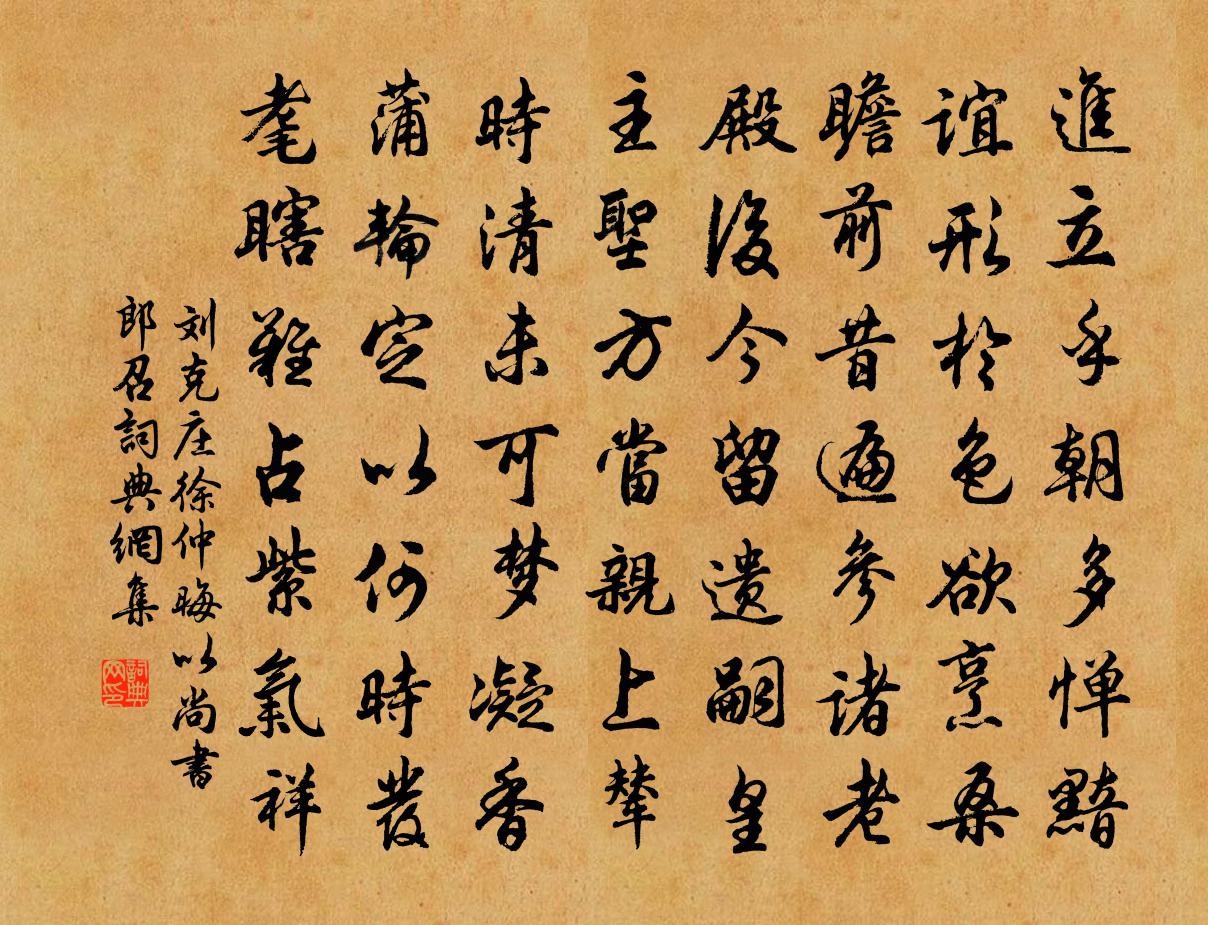 進立乎朝多惮黯
誼形於色欲烹桑
瞻前昔遍參诸老
殿後今留遗嗣皇
主聖方當親上辇
時清未可梦凝香
蒲輪定以何時发
耄瞎難占紫氣祥
刘克庄徐仲晦以尚書
郎召詞典網集
詞典网印